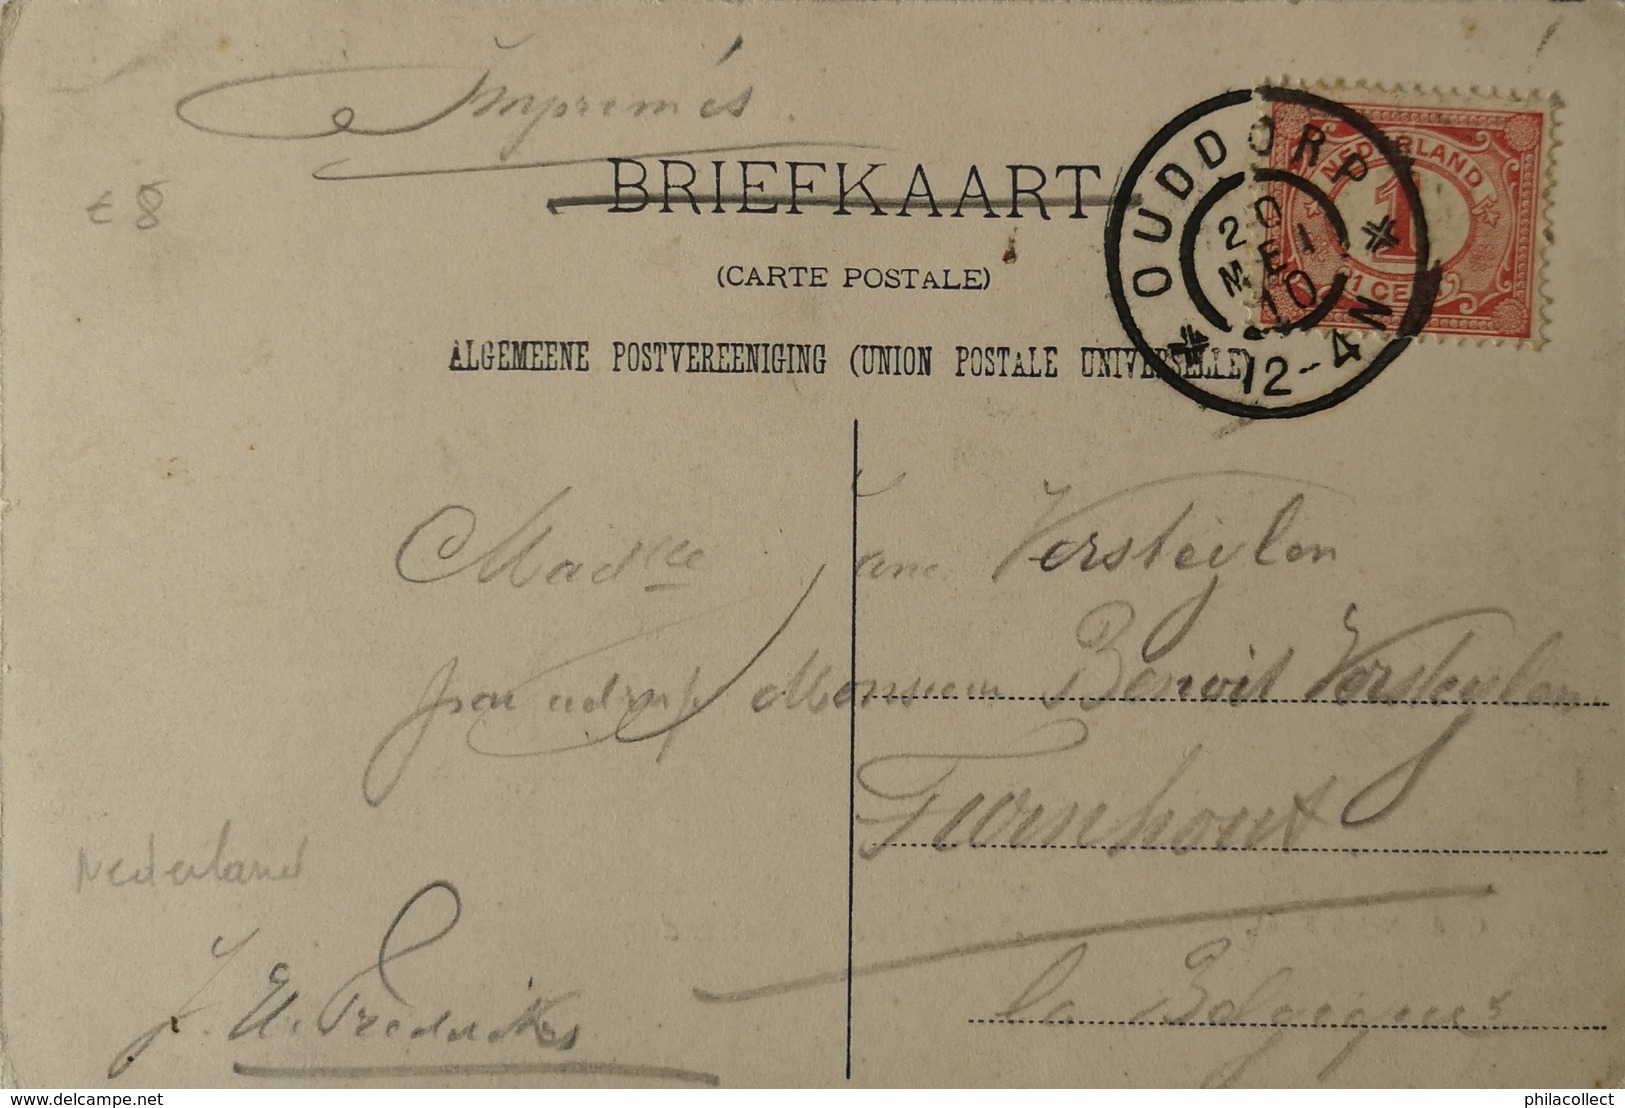 Imprimés.
€8
BRIEFKAART
(CARTE POSTALE)
ALGEMEENE POSTVEREENIGING (UNION POSTALE UNIVERSELLE)
OUDDORP
20
MEI
10
12-4N
NEDERLAND
1
1 CE
Madlle Versteylen
Monsieur Benoit Versteylen
Turnhout
la Belgique
Nederland
J. Frederiks
delcampe.net
philacollect